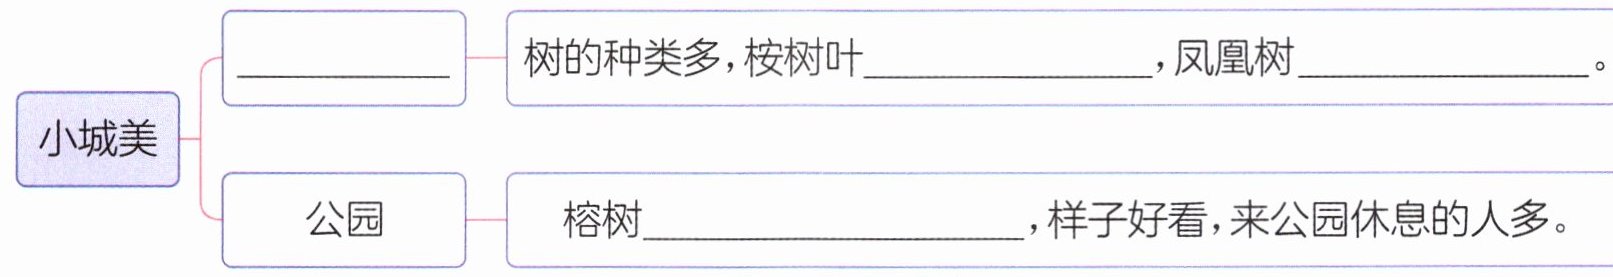 树的种类多，桉树叶________，凤凰树________。
小城美
公园
榕树________，样子好看，来公园休息的人多。